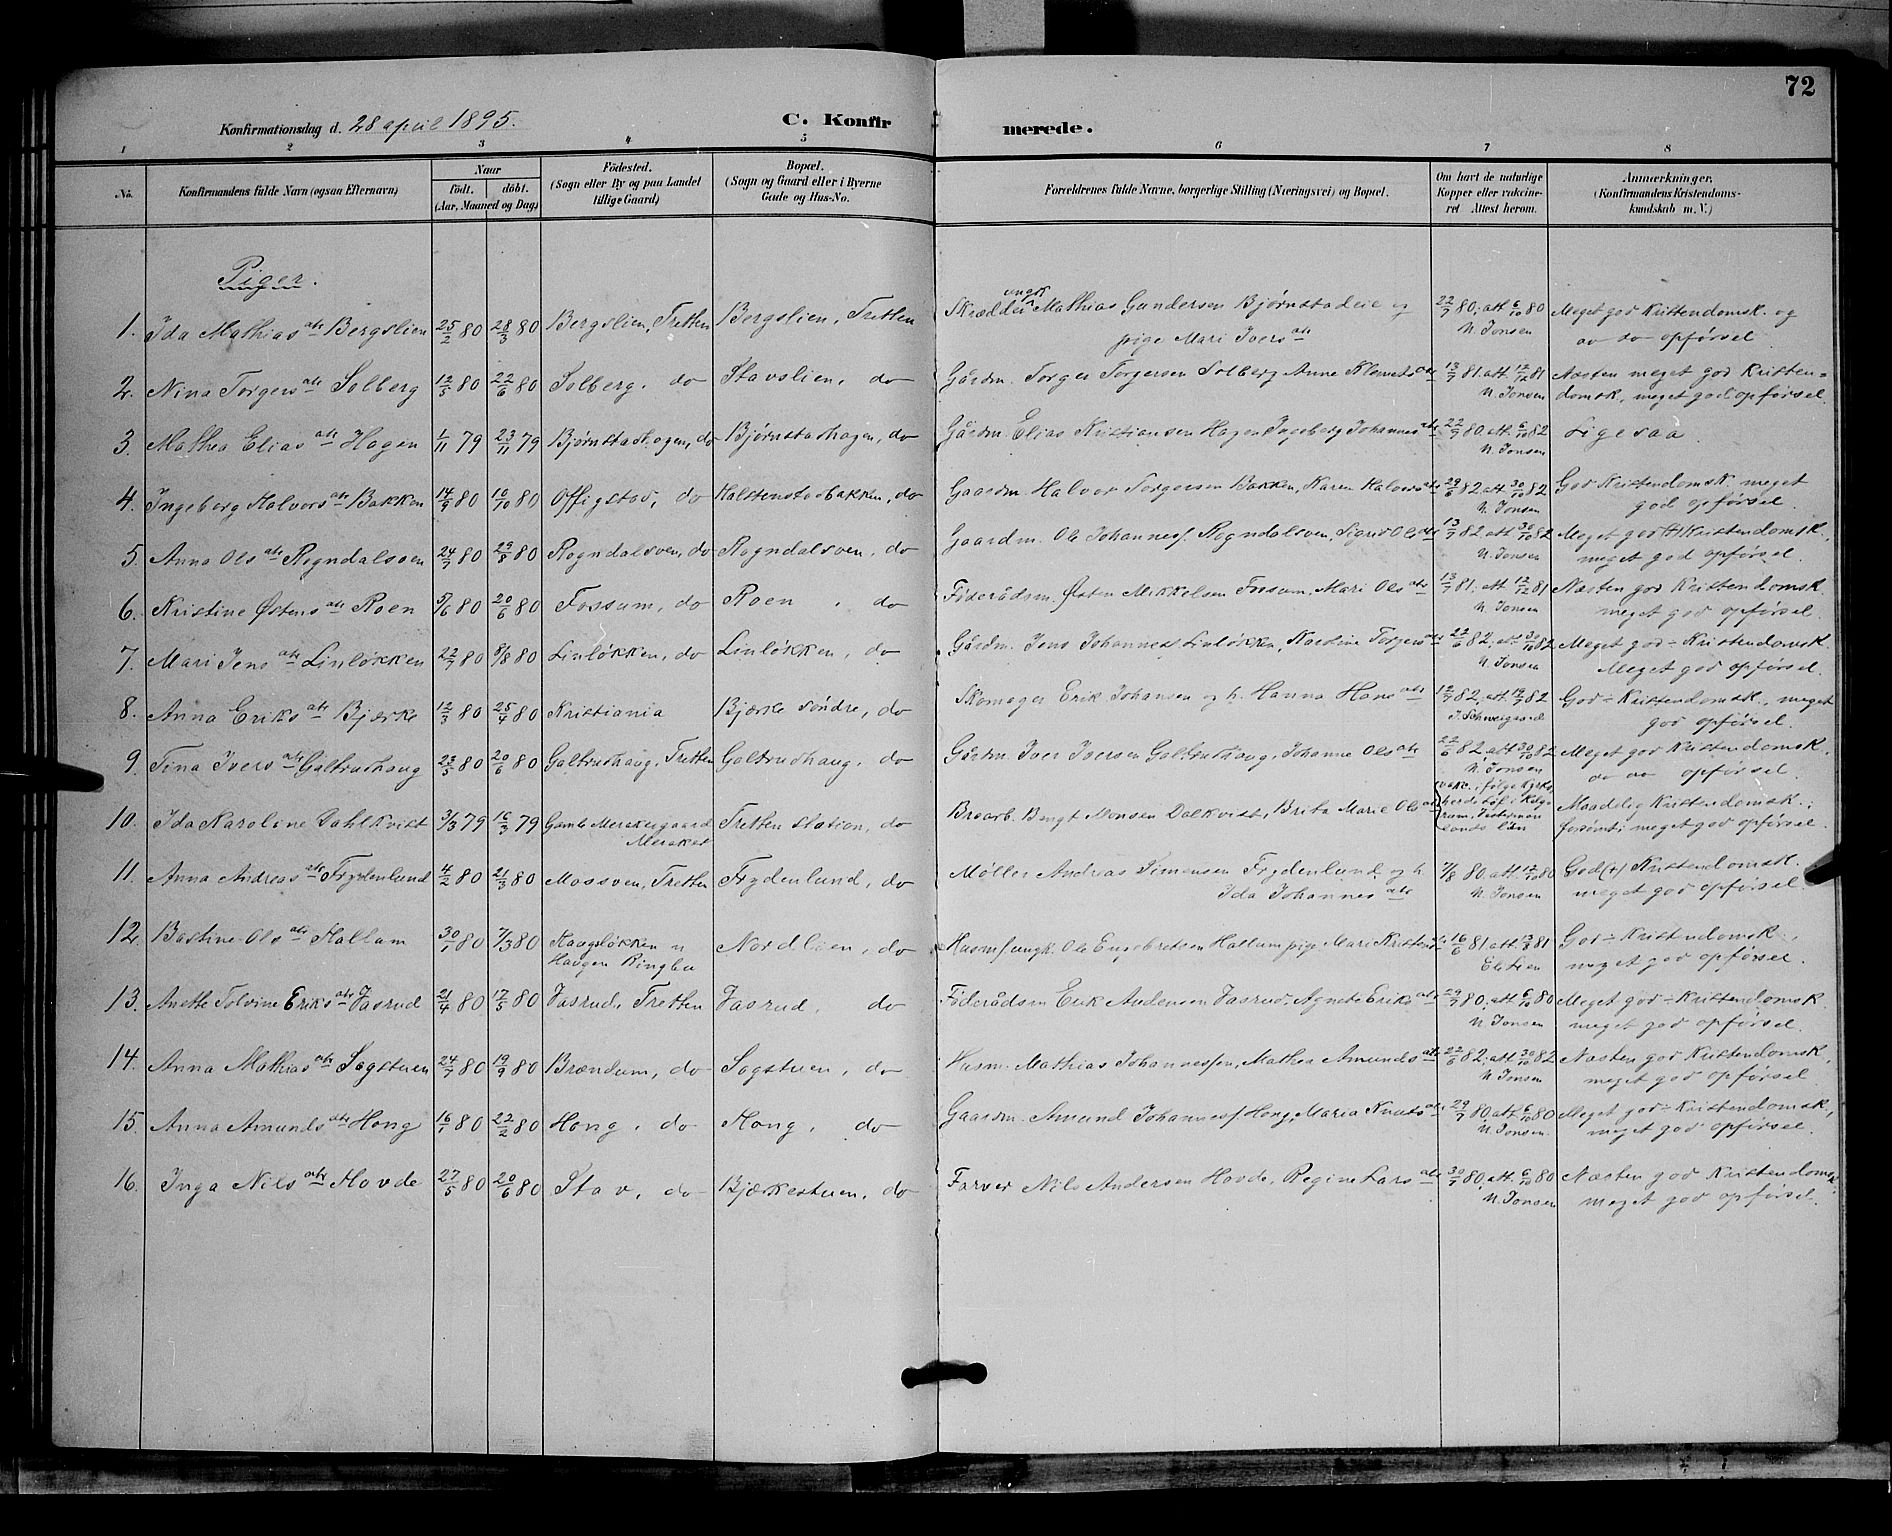 72
Konfirmationsdag d. 28 april 1895.
C. Konfirmerede.
1 2 3 4 5 6 7 8
No.
Konfirmandens fulde Navn (ogsaa Efternavn)
Naar
födt. döbt.
(Aar, Maaned og Dag)
Födested.
(Sogn eller By og paa Landet
tillige Gaard)
Bopæl.
(Sogn og Gaard eller i Byerne
Gade og Hus-No.
Forældrenes fulde Navne, borgerlige Stilling (Næringsvei) og Bopæl.
Om havt de naturlige
Kopper eller vakcine-
ret Attest herom.
Anmerkninger.
(Konfirmandens Kristendoms-
kundskab m. V.)
Piger.
1. Ida Mathias dtr Bergslien 25/2 80 28/3 80 Bergslien, Tretten Bergslien, Tretten Skrædder ungk Mathias Gundersen Bjørnstadeie og 22/7 80; att 6/10 80 Meget god Kristendomsk. og
pige Mari Ivers dtr N. Jonsen do do opførsel
2. Nina Torgers dtr Solberg 12/5 80 22/6 80 Solberg, do Stavslien, do Gårdm. Torger Torgersen Solberg Anne Klevets dtr 13/7 81. att. 12/12 81 Næsten meget god Kristen=
N. Jonsen domsk., meget god opførsel.
3. Mathea Elias dtr Hagen 1/11 79 23/11 79 Bjørnstadhagen, do Bjørnstadhagen, do Gårdm. Elias Kristiansen Hagen Ingeborg Johannes dtr 22/7 80. att. 6/10 82 Ligesaa
N. Jonsen
4. Ingeborg Halvors dtr Bakken 14/9 80 10/10 80 Offigstad, do Halstenstadbakken, do Gaardm. Halvor Torgersen Bakken, Karen Halvors dtr 29/6 82. att 30/10 82 God Kristendomsk. meget
N. Jonsen god opførsel.
5. Anna Ols dtr Rogndalsven 24/7 80 29/8 80 Rogndalsven, do Rogndalsven, do Gaardm. Ole Johannes/. Rogndalsven, Sigrid Ols dtr 13/7 82. att 30/10 82 Meget god (+) Kristendomsk.,
N. Jonsen meget god opførsel.
6. Kristine Østens dtr Roen 5/6 80 20/6 80 Fossum, do Roen, do Föderådsm. Østen Mikkelsen Fossum, Mari Ols dtr 13/7 81; att 12/12 81 Næsten god Kristendomsk.
N. Jonsen meget god opførsel.
7. Mari Jens dtr Linløkken 22/7 80 8/8 80 Linløkken, do Linløkken, do Gårdm. Jens Johannes Linløkken, Kastine Torgers dtr 22/6 82; att 30/10 82 Meget god ÷ Kristendomsk.
N. Jonsen Meget god opførsel.
8. Anna Eriks dtr Bjerke 12/3 80 25/4 80 Kristiania Bjerke søndre, do Skomager Erik Johansen og h. Hanna Hans dtr 12/9 82, att 19/9 82 God ÷ Kristendomsk., meget
J. Schweigaard god opførsel.
9. Tina Ivers dtr Galtrudhaug 23/5 80 20/6 80 Galtrudhaug, Tretten Galtrudhaug, do Gårdm. Iver Iversen Galtrudhaug, Johanne Ols dtr 22/6 82, att 30/10 82 Meget god Kristendomsk.
N. Jonsen do do opførsel.
10. Ida Karoline Dahlkvist 3/3 79 16/3 79 Gamle Merakergaard Meraker Tretten station, do Brearb. Bengt Monsen Dalkvist, Brita Marie Ols dtr vakc. ifølge kyrko herdebøf i Kølgs rum, Vestermor lands län Maadelig Kristendomsk.;
forsømt; meget god opførsel.
11. Anna Andreas dtr Frydenlund 4/2 80 21/3 80 Mossven, Tretten Frydenlund, do Møller Andreas Simensen Frydenlund og h. 7/8 80 att. 12/10 80 God (+) Kristendomsk.
Ida Johannes dtr N. Jonsen meget god opførsel.
12. Bastine Ols dtr Hallum 30/1 80 7/3 80 Haugsløkken u Haugen Ringbu Nordlien, do Husm/ungk. Ole Engebretsen Hallum pige Mari Kristens dtr 16/6 81. att. 13/8 81 God ÷ Kristendomsk.,
meget god opførsel.
13. Anette Tolvine Eriks dtr Jasrud 21/4 80 17/5 80 Jasrud, Tretten Jasrud, do Föderådsm Erik Andersen Jasrud, Agnete Eriks dtr 29/7 80; att 6/10 80 Meget god ÷ Kristendomsk
N. Jonsen meget god opførsel.
14. Anna Mathias dtr Sagstuen 24/7 80 19/9 80 Brændum, do Sagstuen, do Husm. Mathias Johannessen, Mathea Amunds dtr 22/6 82; att 30/10 82 Næsten god Kristendomsk,
N. Jonsen meget god opførsel
15. Anna Amunds dtr Hong 16/1 80 22/2 80 Hong, do Hong, do Gaardm. Amund Johannes/ Hong, Maria Knuts dtr 29/7 80 att 6/10 80 Meget god ÷ Kristendomsk,
N. Jonsen. meget god opførsel.
16. Inga Nils dtr Hovde 27/5 80 20/6 80 Stav, do Bjerkestuen, do Farver Nils Andersen Hovde, Regine Lars dtr 30/7 80. att 6/10 80 Næsten god Kristendomsk.
N. Jonsen meget god opførsel.